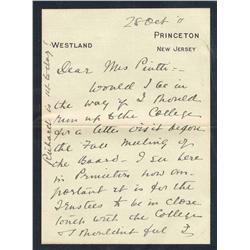 28 Oct
PRINCETON
WESTLAND
NEW JERSEY
Dear Mrs
Would I be in
the way if I should
run up to the College
for a little visit before
the Fall meeting of
the Board - I see here
in Princeton how im-
portant it is for the
Trustees to be in close
touch with the College
& I shouldn't feel I
Richard is 14 today!